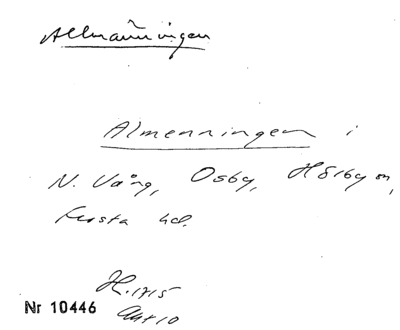 Allmänningen
Almenningen i
N. Vång, Osby, Hörby sn,
hd.
H. 1715
Akt 10
Nr 10446